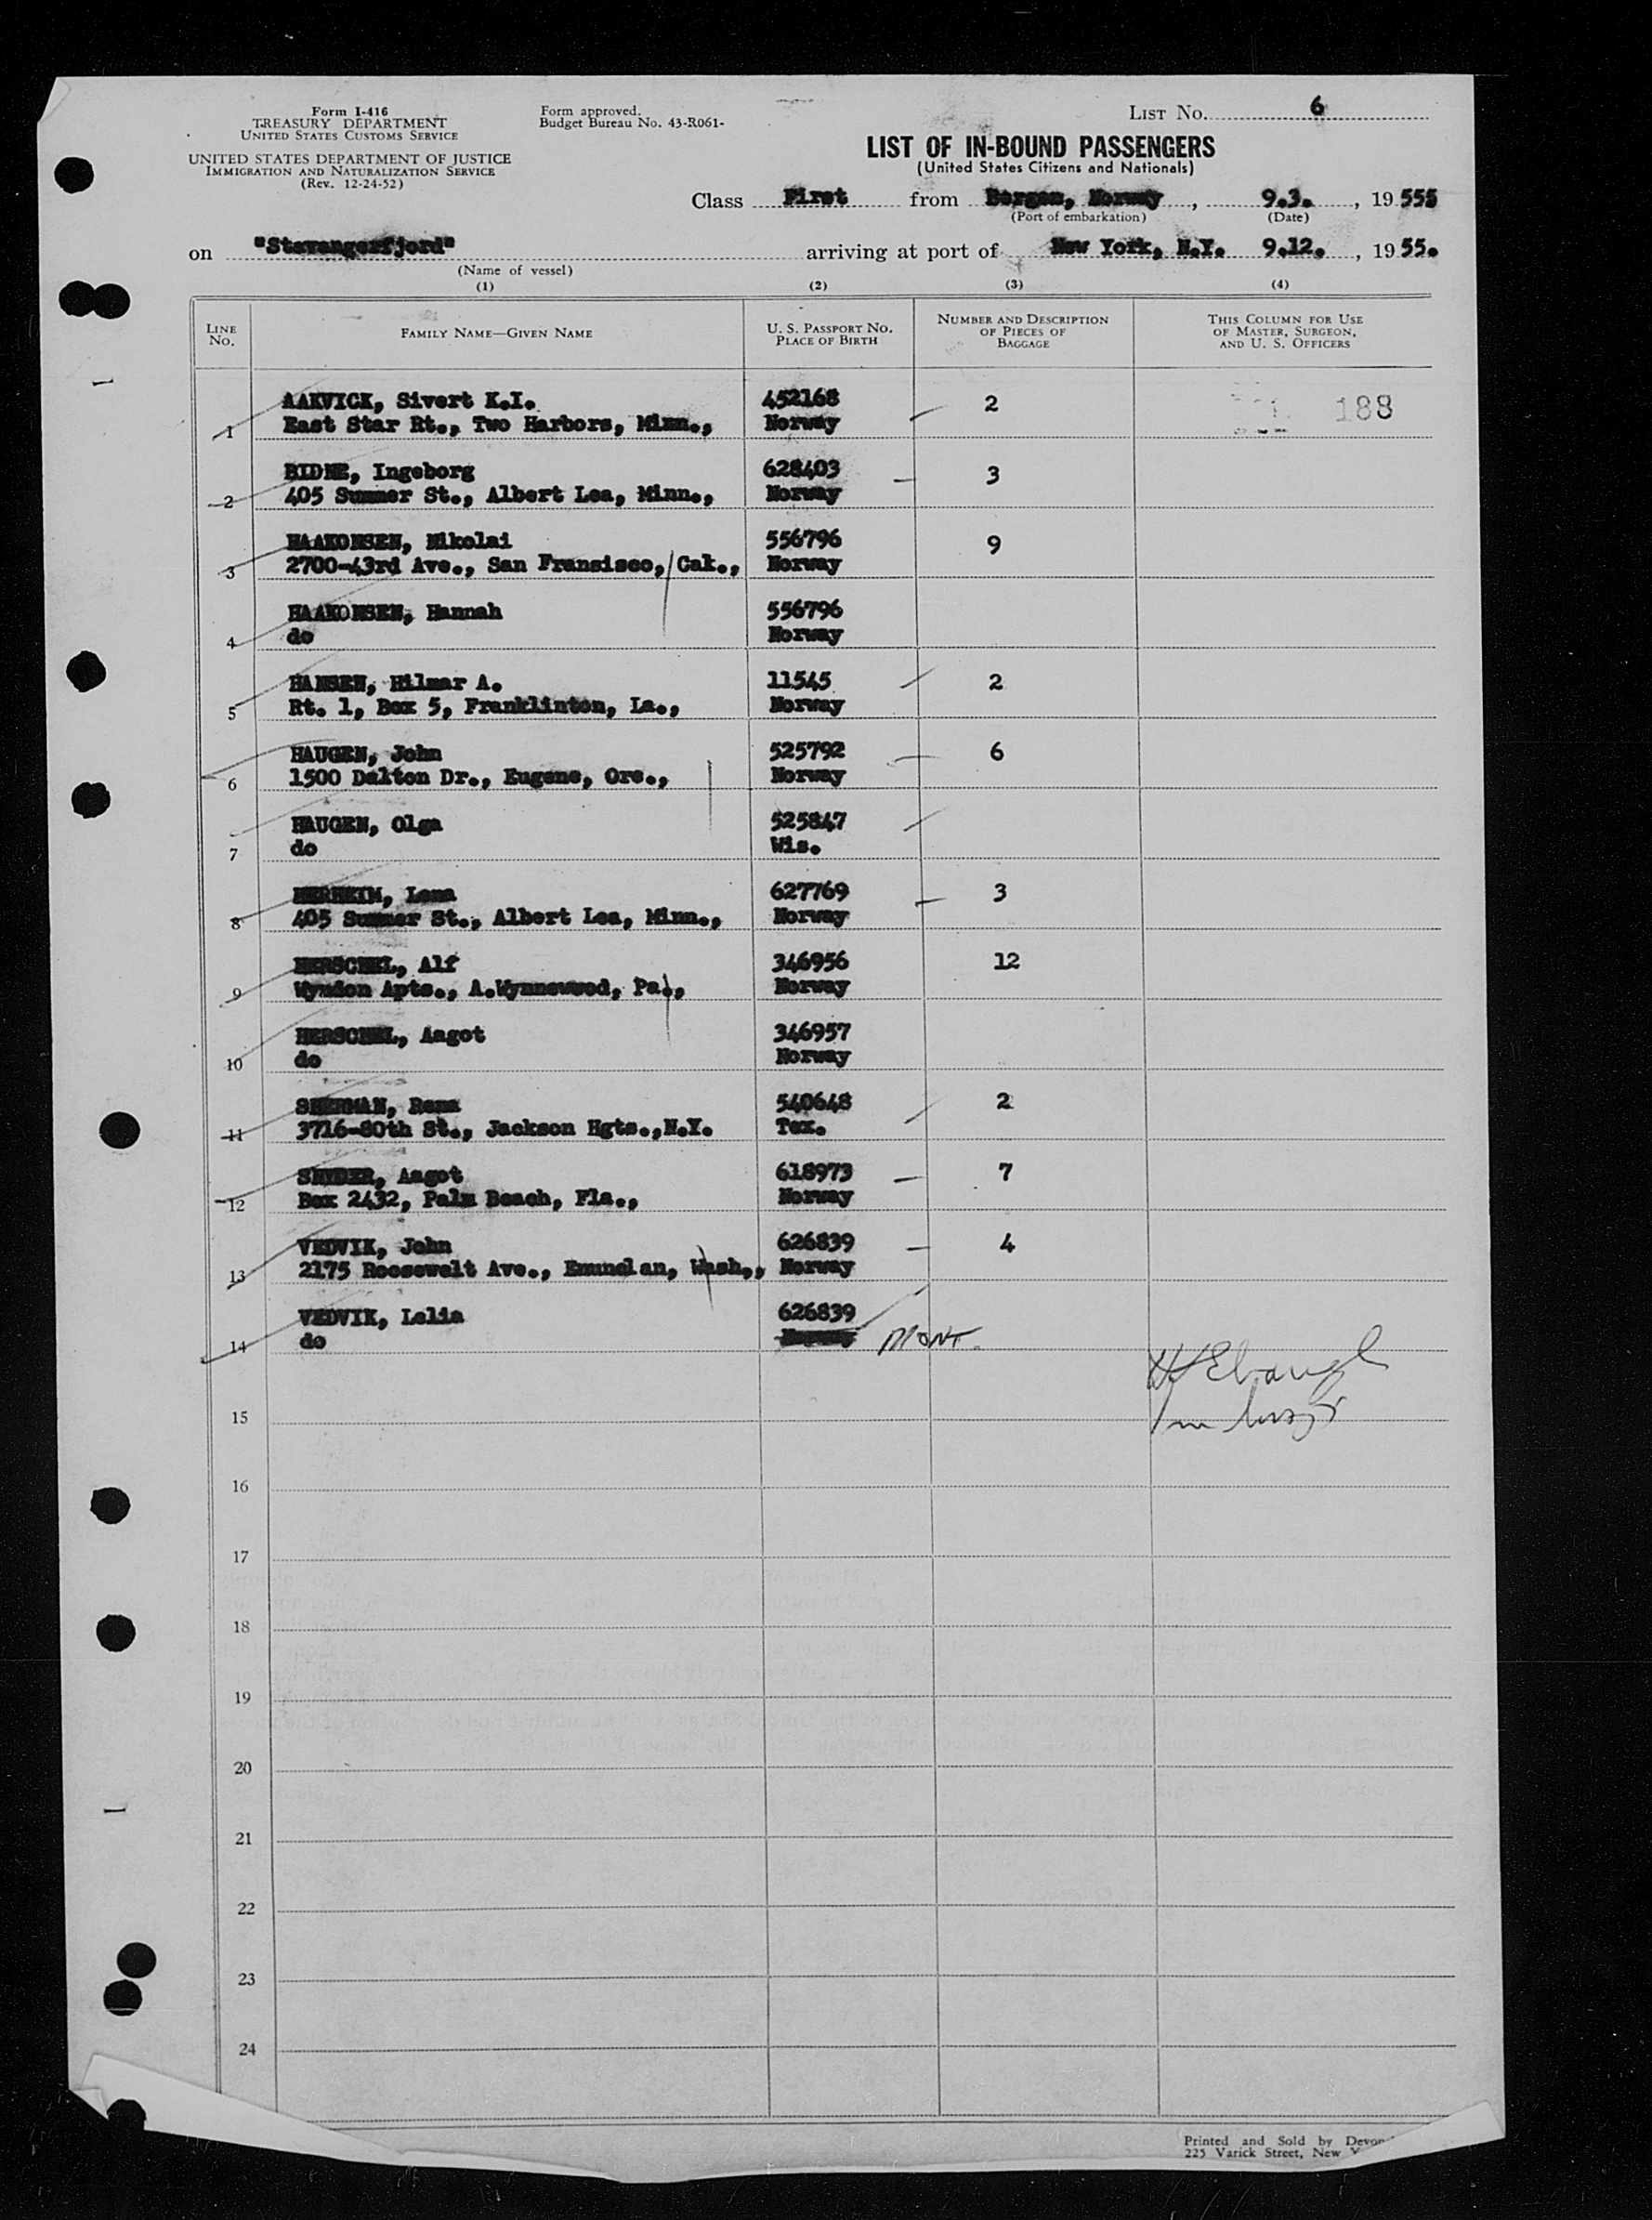 Form I-416
TREASURY DEPARTMENT
UNITED STATES CUSTOMS SERVICE
UNITED STATES DEPARTMENT OF JUSTICE
IMMIGRATION AND NATURALIZATION SERVICE
(Rev. 12-24-52)
Form approved.
Budget Bureau No. 43-R061-
LIST No. 6
LIST OF IN-BOUND PASSENGERS
(United States Citizens and Nationals)
Class First from Bergen, Norway, 9.3., 19 555
(Port of embarkation) (Date)
on "Stavangerfjord" arriving at port of New York, N.Y. 9.12., 19 55.
(Name of vessel)
(1) (2) (3) (4)
LINE No. FAMILY NAME—GIVEN NAME U. S. PASSPORT NO. PLACE OF BIRTH NUMBER AND DESCRIPTION OF PIECES OF BAGGAGE THIS COLUMN FOR USE OF MASTER, SURGEON, AND U. S. OFFICERS
AAKVICK, Sivert K.I. 452168 2 188
1 East Star Rt., Two Harbors, Minn., Norway
BIDNE, Ingeborg 628403 3
2 405 Sumner St., Albert Lea, Minn., Norway
HAAKONSEN, Nikolai 556796 9
3 2700-43rd Ave., San Fransisco, Cak., Norway
HAAKONSEN, Hannah 556796
4 do Norway
HANSEN, Hilmar A. 11545 2
5 Rt. 1, Box 5, Franklinton, La., Norway
HAUGEN, John 525792 6
6 1500 Dalton Dr., Eugene, Ore., Norway
HAUGEN, Olga 525847
7 do Wis.
HERHEIM, Lena 627769 3
8 405 Sumner St., Albert Lea, Minn., Norway
HERSCHEL, Alf 346956 12
9 Wyndon Apts., A.Wynnewood, Pa., Norway
HERSCHEL, Aagot 346957
10 do Norway
SHERMAN, Rena 540648 2
11 3716-80th St., Jackson Hgts.,N.Y. Tex.
SNYDER, Aagot 618973 7
12 Box 2432, Palm Beach, Fla., Norway
VEDVIK, John 626839 4
13 2175 Roosewelt Ave., Enumclan, Wash., Norway
VEDVIK, Lelia 626839
14 do Norway MONT.
15
16
17
18
19
20
21
22
23
24
Printed and Sold by
225 Varick Street, New